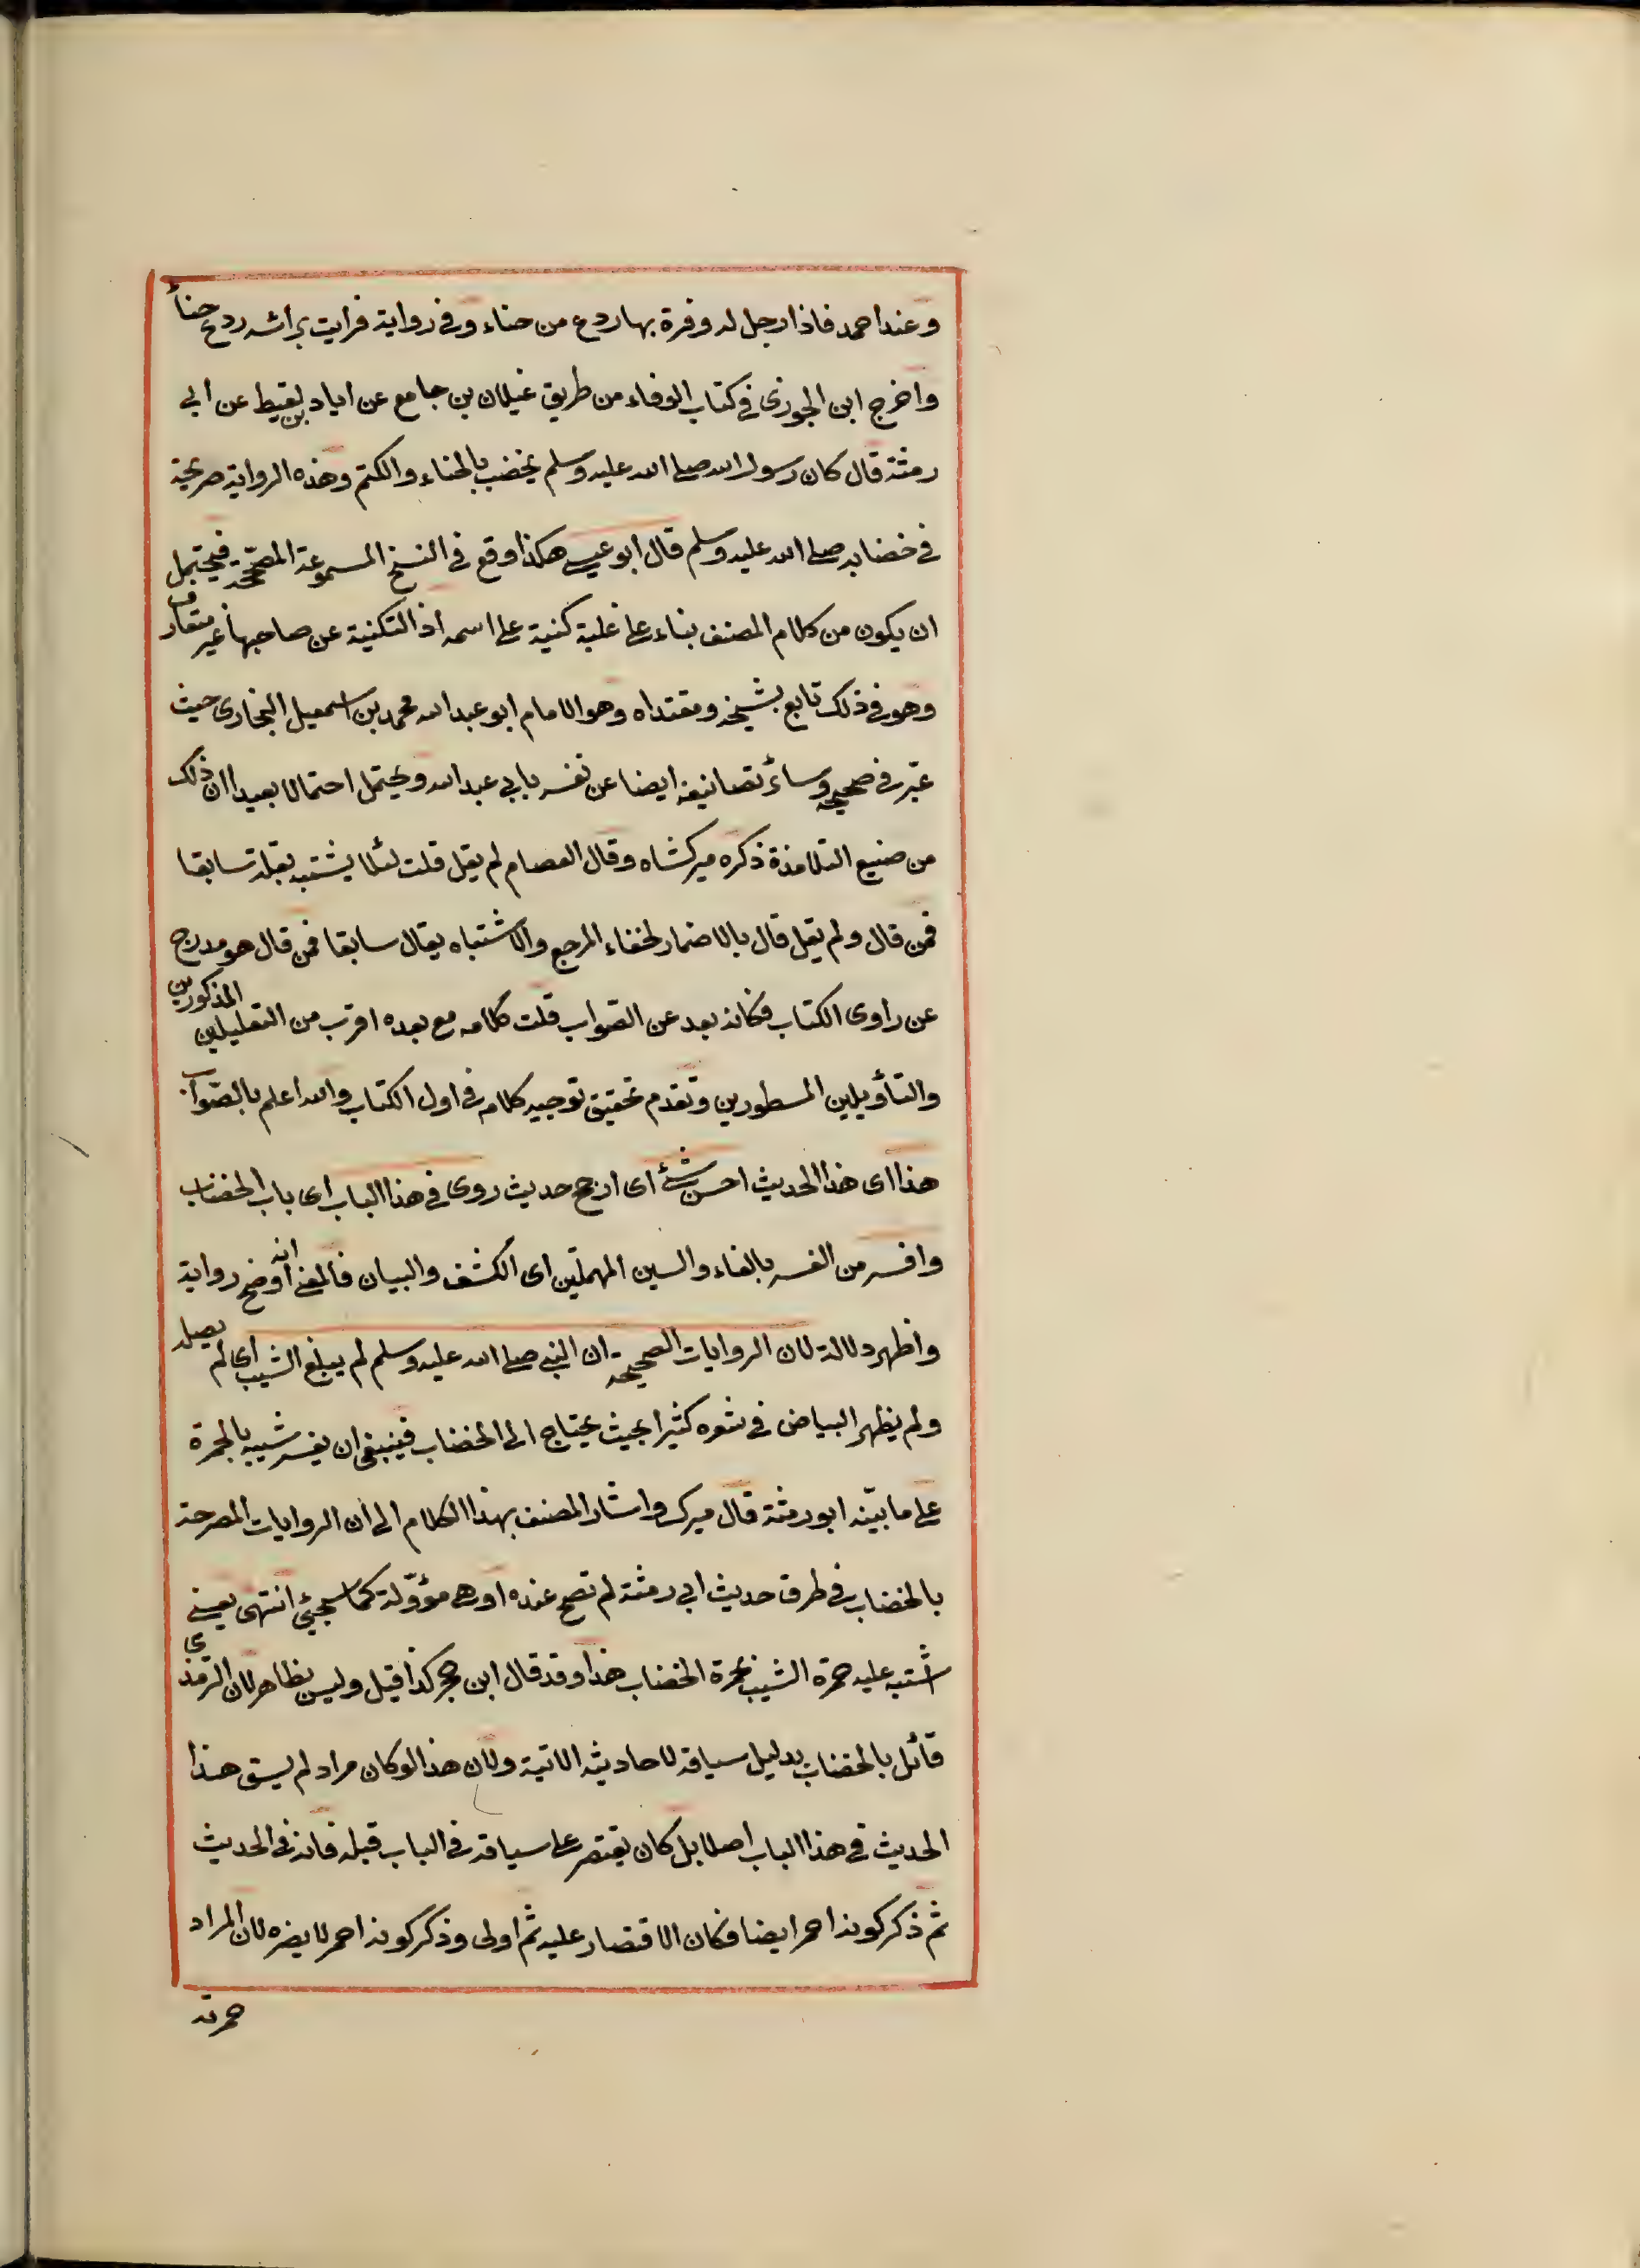 وعند احمد فاذا رجل له وفرة بها ردع من حناء وفي رواية فرايت براسه ردع حناء
واخرج ابن الجوزي في كتاب الوفاء من طريق غيلان بن جامع عن اياد بن لقيط عن ابي
رمثة قال كان رسول الله صلى الله عليه وسلم يخضب بالحناء والكتم وهذه الرواية صريحة
في خضابه صلى الله عليه وسلم قال ابو عيسى هكذا وقع في النسخ المسموعة المصححة فيحتمل
ان يكون من كلام المصنف بناء على غلبة كنية على اسمه اذ التكنية عن صاحبها غير متعارف
وهو في ذلك تابع بشيخه ومقتداه وهو الامام ابو عبد الله محمد بن اسمعيل البخاري حيث
عبّر في صحيحه وسائر تصانيفه ايضا عن نفسه بابي عبد الله ويحتمل احتمالا بعيدا ان ذلك
من صنيع التلامذة ذكره ميركشاه وقال العصام لم يقل قلت لئلا يشتبه بقلت سابقا
فمن قال ولم يقل قال بالاضمار لخفاء المرجع والاشتباه بقال سابقا فمن قال هو مدرج
عن راوي الكتاب فكانه بعد عن الصواب قلت كلامه مع بعده اقرب من التعليلين المذكورين
والتأويلين المسطورين وتقدم تحقيق توجيه كلامه في اول الكتاب والله اعلم بالصّواب
هذا اى هذا الحديث احسن شئ اى ارجح حديث روى في هذا الباب اى باب الخضاب
وافسر من الفسر بالفاء والسين المهملتين اى الكشف والبيان فالمعنى انه اوضح رواية
واظهر دلالة لان الروايات الصحيحة ان النبي صلى الله عليه وسلم لم يبلغ الشيب اى لم يصله
ولم يظهر البياض في شعره كثيرا بحيث يحتاج الى الخضاب فينبغي ان يفسر شيبه بالحمرة
على ما بيّنه ابو رمثة قال ميرك واشار المصنف بهذا الكلام الى ان الروايات المصرحة
بالخضاب في طرق حديث ابي رمثة لم تصح عنده او هي مؤوّلة كما سيجئ انتهى يعني
اشتبه عليه حمرة الشيب بحمرة الخضاب هذا وقد قال ابن حجر كذا قيل وليس بظاهر لان الترمذي
قائل بالخضاب بدليل سياقه لاحاديثه الاتية ولان هذا لو كان مراد لم يسق هذا
الحديث في هذا الباب اصلا بل كان يقتصر على سياقه في الباب قبله فانه في الحديث
ثم ذكر كونه احمر ايضا فكان الاقتصار عليه ثم اولى وذكر كونه احمر لا يضره لان المراد
حمرته